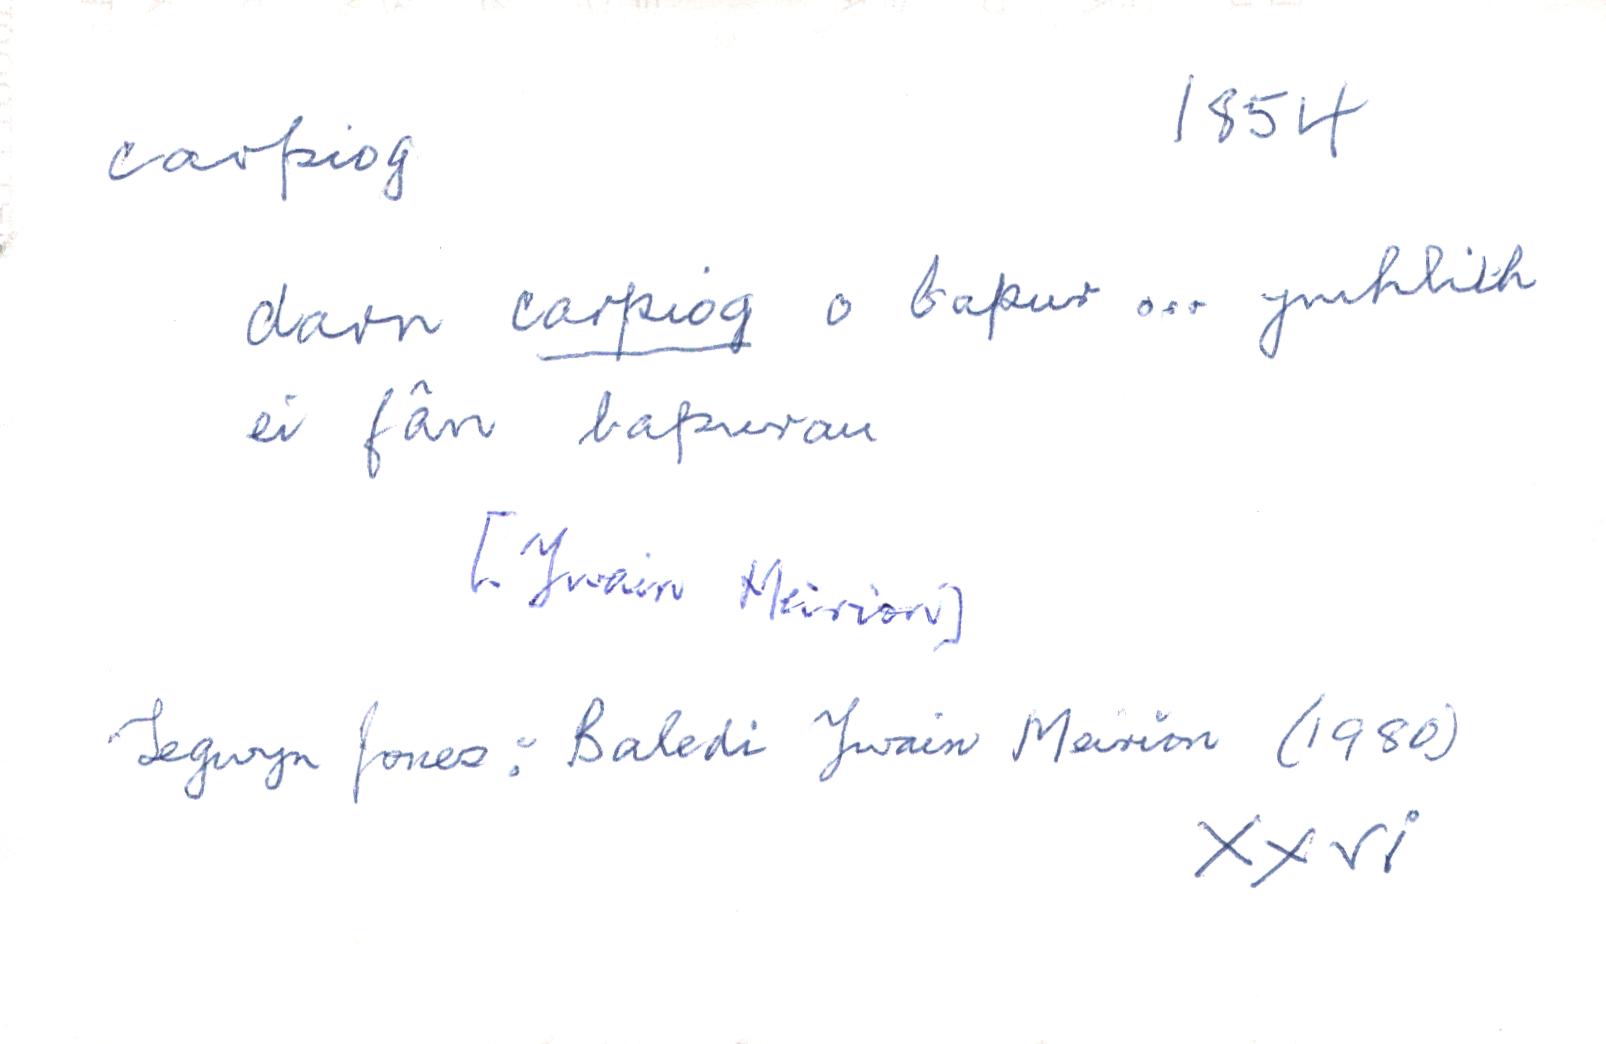 carpiog 1854
darn carpiog o bapur ... ymhlith
ei fân bapurau
[Ywain Meirion]
Tegwyn Jones: Baledi Ywain Meirion (1980)
xxvi